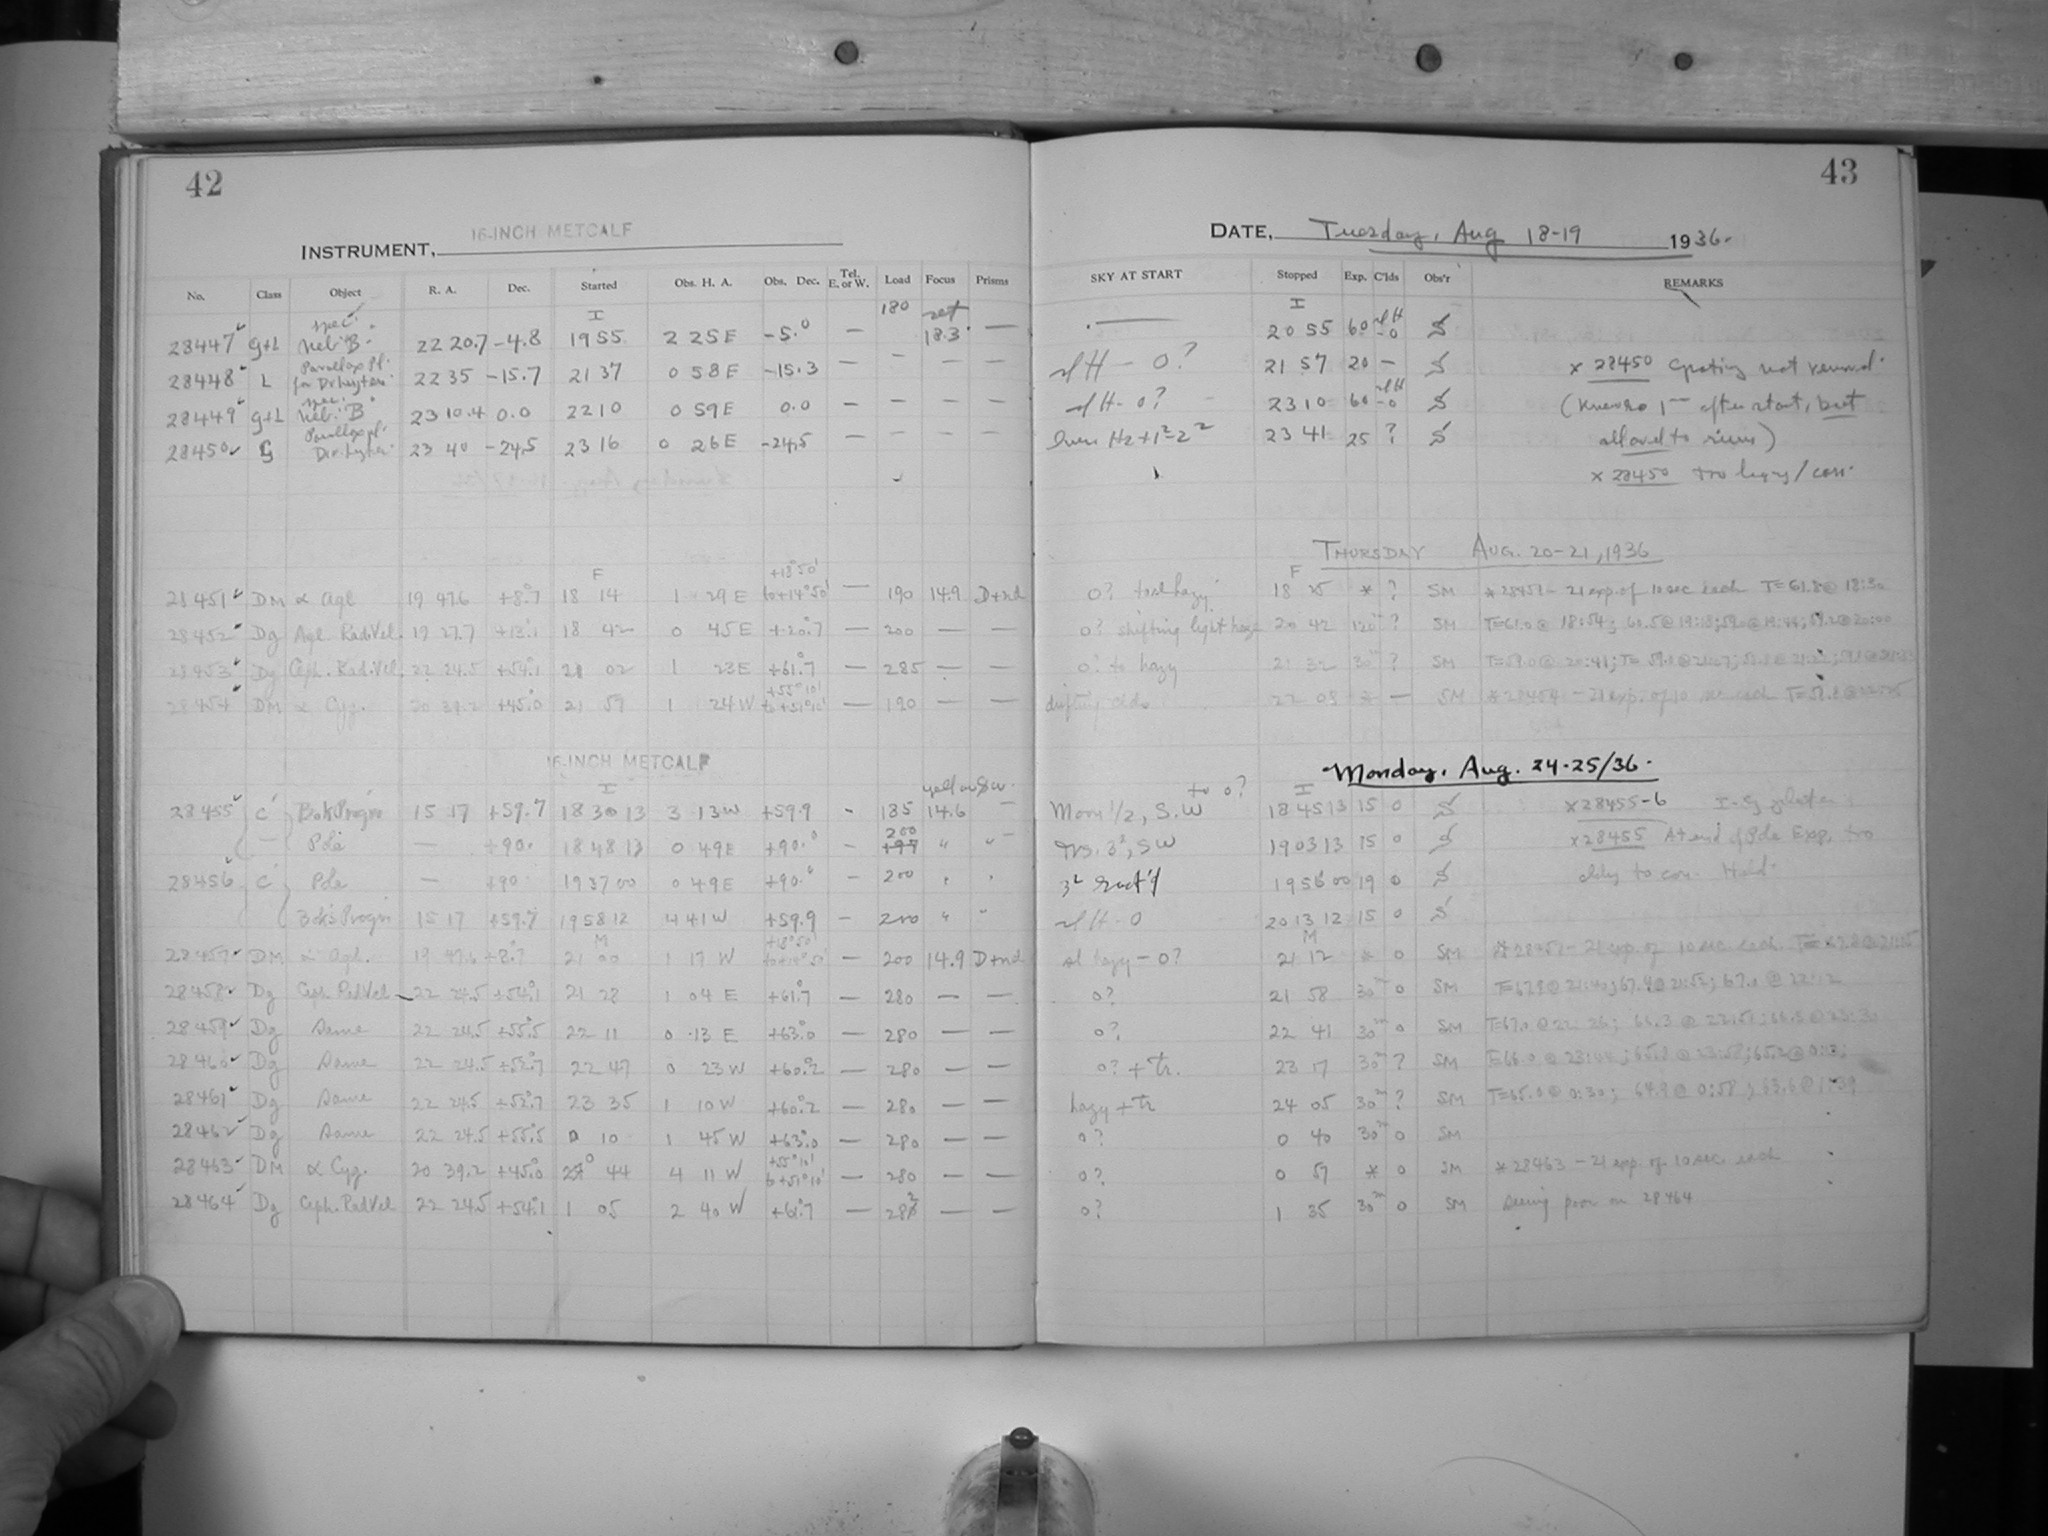 42
INSTRUMENT, 16-INCH METCALF
No. Class Object R. A. Dec. Started Obs. H. A. Obs. Dec. Tel. E. or W. Load Focus Prisms
I 180 set
28447 G+L Spec. Neb. "B" 22 20.7 -4.8 19 55 2 25 E -5.0 — 18.3 —
28448 L Parallax pl. 22 35 -15.7 21 37 0 58 E -15.3 — — — —
28449 G+L Spec. Neb. "B" 23 10.4 0.0 22 10 0 59 E 0.0 — — — —
28450 G Parallax pl. 23 40 -24.5 23 16 0 26 E -24.5 — — — —
F
28451 DM α Aql 19 47.6 +8.7 18 14 1 29 E +13°50' to +14°50' — 190 14.9 D+nd
28452 Dg Aql. Rad.Vel. 19 27.7 +13.1 18 42 0 45 E +20.7 — 200 — —
28453 Dg Ceph. Rad.Vel. 22 24.5 +54.1 21 02 1 23 E +61.7 — 285 — —
28454 DM α Cyg. 20 39.2 +45.0 21 59 1 24 W +55°10' to +51°10' — 190 — —
16-INCH METCALF
I yellow
28455 C Bok Progrm 15 17 +59.7 18 30 13 3 13 W +59.9 - 185 14.6 —
— Pole — +90. 18 48 13 0 49 E +90.0 - 200 " "
28456 C Pole — +90 19 37 00 0 49 E +90.0 - 200 " "
Bok's Progrm 15 17 +59.7 19 58 12 4 41 W +59.9 - 200 " "
M
28457 DM α Aql. 19 47.6 +8.7 21 00 1 17 W — 200 14.9 D+nd
28458 Dg Ceph. Rad Vel 22 24.5 +54.1 21 28 1 04 E +61.7 — 280 — —
28459 Dg Same 22 24.5 +55.5 22 11 0 13 E +63.0 — 280 — —
28460 Dg Same 22 24.5 +52.7 22 47 0 23 W +60.2 — 280 — —
28461 Dg Same 22 24.5 +52.7 23 35 1 10 W +60.2 — 280 — —
28462 Dg Same 22 24.5 +55.5 0 10 1 45 W +63.0 — 280 — —
28463 DM α Cyg. 20 39.2 +45.0 0 44 4 11 W +55°10' to +51°10' — 280 — —
28464 Dg Ceph. Rad Vel 22 24.5 +54.1 1 05 2 40 W +61.7 — 282 — —
43
DATE, Tuesday, Aug 18-19 1936.
SKY AT START Stopped Exp. C'lds Obs'r REMARKS
I
— 20 55 60 sl H -0 S
sl H - 0? 21 57 20 — S × 28450 Grating not removed.
sl H - 0? 23 10 60 sl H -0 S after start, but
23 41 25 ? S allowed to run)
× 28450 too hazy / con.
THURSDAY AUG. 20-21, 1936
F
0? to sl hazy 18 25 * ? SM *28451 - 21 exp. of 10 sec each T=61.8 @ 18:30
0? shifting light haze 20 42 120m ? SM T=61.0 @ 18:54;
0? to hazy 21 32 30m ? SM
drifting clds 22 09 * — SM *28454 - 21 exp. of 10 sec each
Monday, Aug. 24-25/36.
to 0? I
Moon 1/2, S.W 18 45 13 15 0 S ×28455-6
Trs. 3², SW 19 03 13 15 0 S ×28455 At end of Pole Exp, too
3² 19 56 00 19 0 S Hold.
sl H - 0 20 13 12 15 0 S
M
sl hazy - 0? 21 12 * 0 SM *28457 - 21 exp. of 10 sec. each
0? 21 58 30m 0 SM T=67.9 @ 21:40; 67.4 @ 21:52; 67.1 @ 22:12
0? 22 41 30m 0 SM
0? + tr. 23 17 30m ? SM
hazy + tr 24 05 30m ? SM T=65.0 @ 0:30; 64.9 @ 0:58; 63.6 @ 1:39
0? 0 40 30m 0 SM
0? 0 57 * 0 SM *28463 - 21 exp. of 10 sec. each
0? 1 35 30m 0 SM Seeing poor on 28464